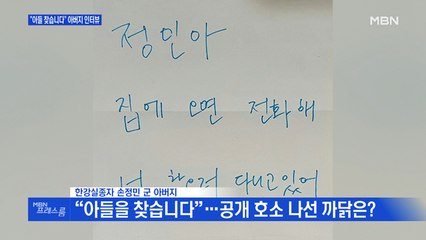 "아들 찾습니다" 아버지 인터뷰
MBN
정인아
집에 오면 전화해
너 찾으러 다니고있어
한강실종자 손정민 군 아버지
MBN
프레스룸
“아들을 찾습니다”…공개 호소 나선 까닭은?